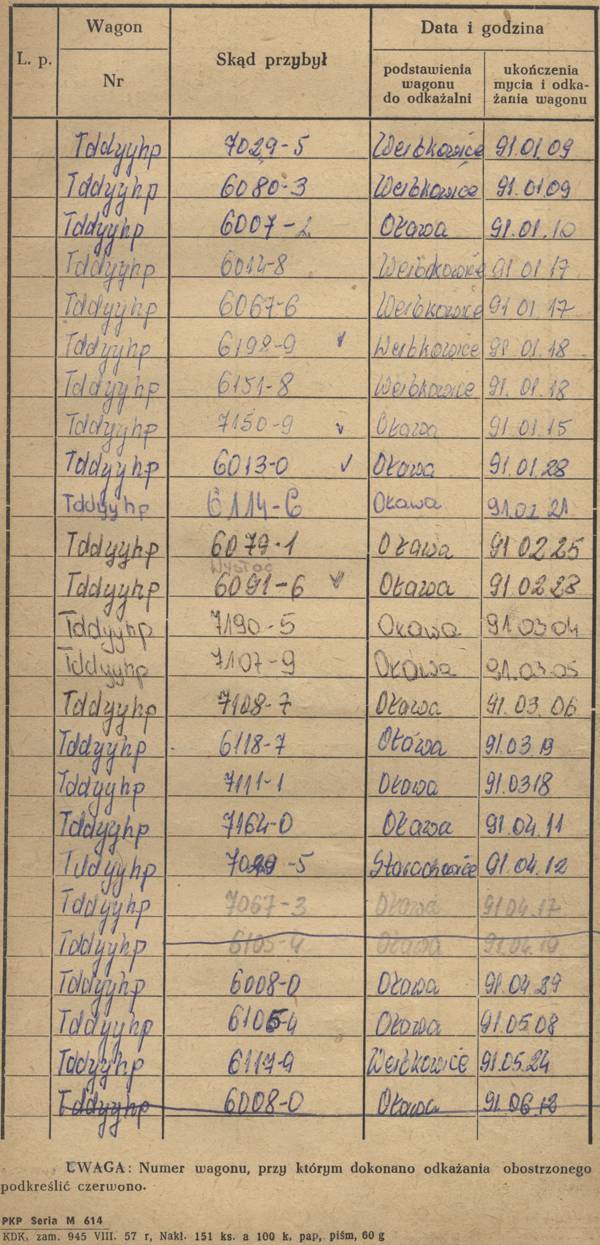 L. p.
Wagon
Nr
Skąd przybył
Data i godzina
podstawienia
wagonu
do odkażalni
ukończenia
mycia i odka-
żania wagonu
Tddyyhp 7029-5 Werbkowice 91.01.09
Tddyyhp 6080-3 Werbkowice 91.01.09
Tddyyhp 6007-2 Oława 91.01.10
Tddyyhp 6014-8 Werbkowice 91 01 17
Tddyyhp 6067-6 Werbkowice 91 01 17
Tddyyhp 6198-9 Werbkowice 91 01.18
Tddyyhp 6151-8 Werbkowice 91.01.18
Tddyyhp 7150-9 Oława 91 01 15
Tddyyhp 6013-0 Oława 91.01.28
Tddyyhp 6114-6 Oława 91.02 21
Tddyyhp 6079-1 Oława 91 02 25
Tddyyhp 6091-6 Oława 91.02 28
Tddyyhp 7190-5 Oława 91.03 04
Tddyyhp 7107-9 Oława 91.03.05
Tddyyhp 7108-7 Oława 91.03.06
Tddyyhp 6118-7 Oława 91.03
Tddyyhp 7111-1 Oława 91.0318
Tddyyhp 7164-0 Oława 91.04.11
Tddyyhp -5 Starachowice 91.04.12
Tddyyhp 7067-3 Oława 91 04.17
Tddyyhp 6105-4 Oława 91.04.19
Tddyyhp 6008-0 Oława 91.04.29
Tddyyhp 6105-4 Oława 91.05.08
Tddyyhp 6117-9 Werbkowice 91.05.24
Tddyyhp 6008-0 Oława 91.06
UWAGA: Numer wagonu, przy którym dokonano odkażania obostrzonego
podkreślić czerwono.
PKP Seria M 614
KDK. zam. 945 VIII. 57 r, Nakł. 151 ks. a 100 k, pap, piśm, 60 g